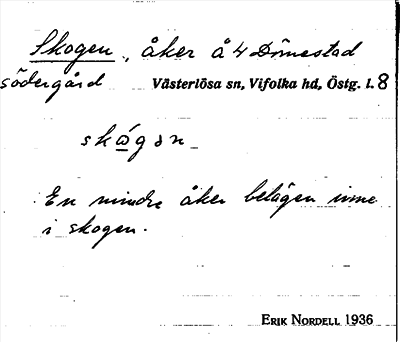 Skogen, åker å 4 Dömestad
södergård Västerlösa sn, Vifolka hd, Östg. l. 8
skǻgən
En mindre åker belägen inne
i skogen.
ERIK NORDELL 1936